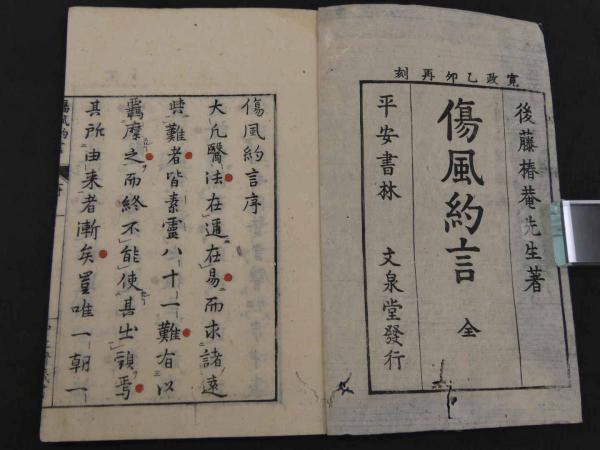 寛政乙卯再刻
後藤椿菴先生著
傷風約言 全
平安書林 文泉堂發行
傷風約言序
大凡醫法在邇在易而求諸遠
與難者皆素靈八十一難有以
羈縻之而終不能使其出頭焉
其所由来者漸矣豈唯一朝一